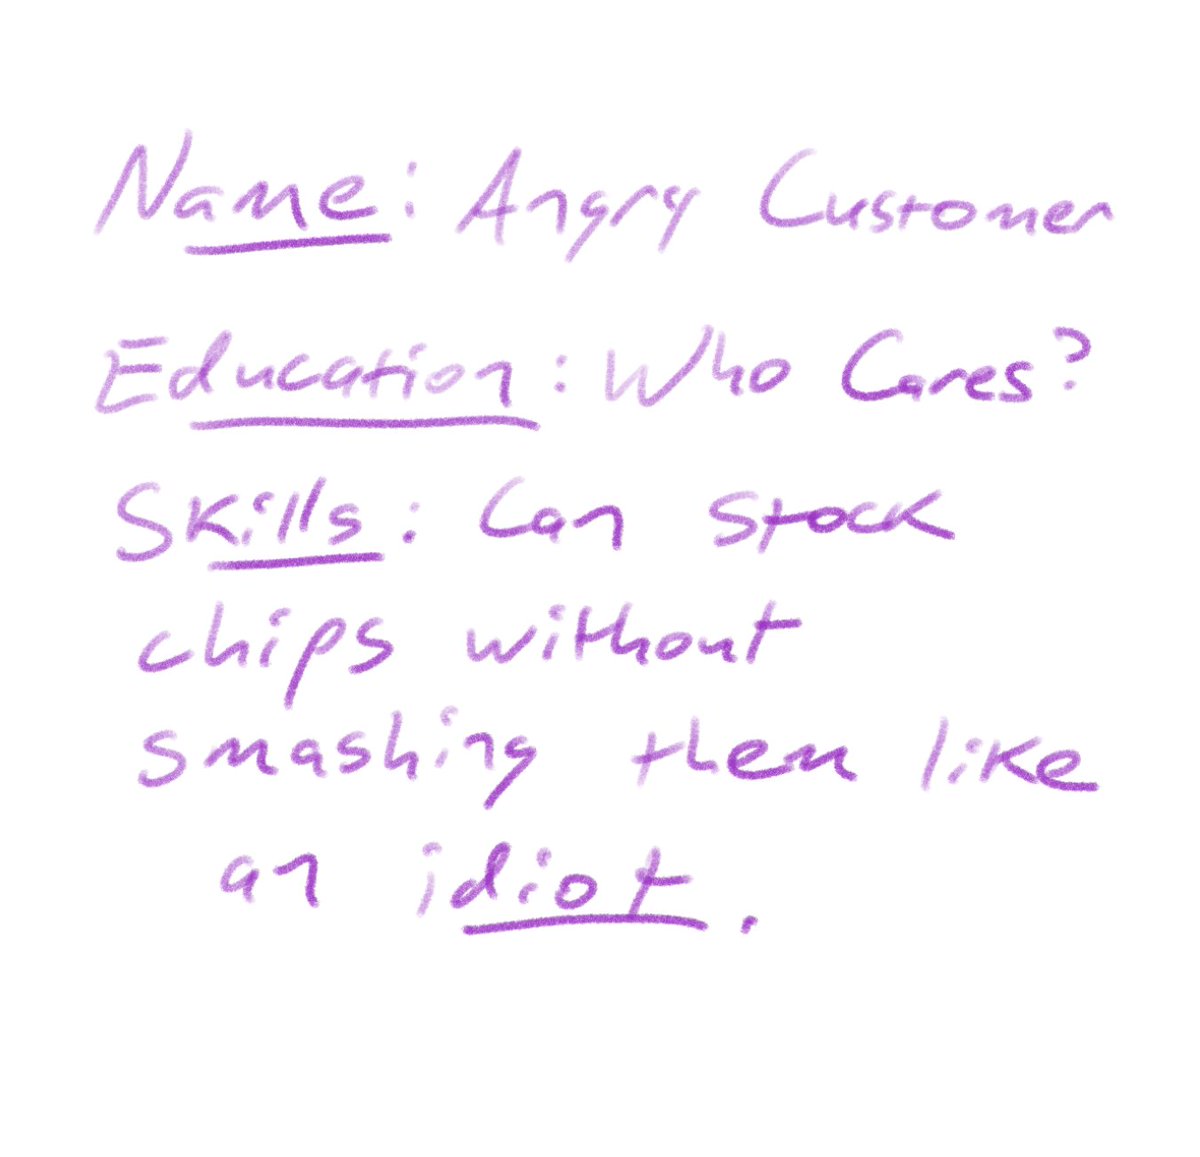 Name: Angry Customer
Education: Who Cares?
Skills: Can stock
chips without
smashing them like
an idiot.